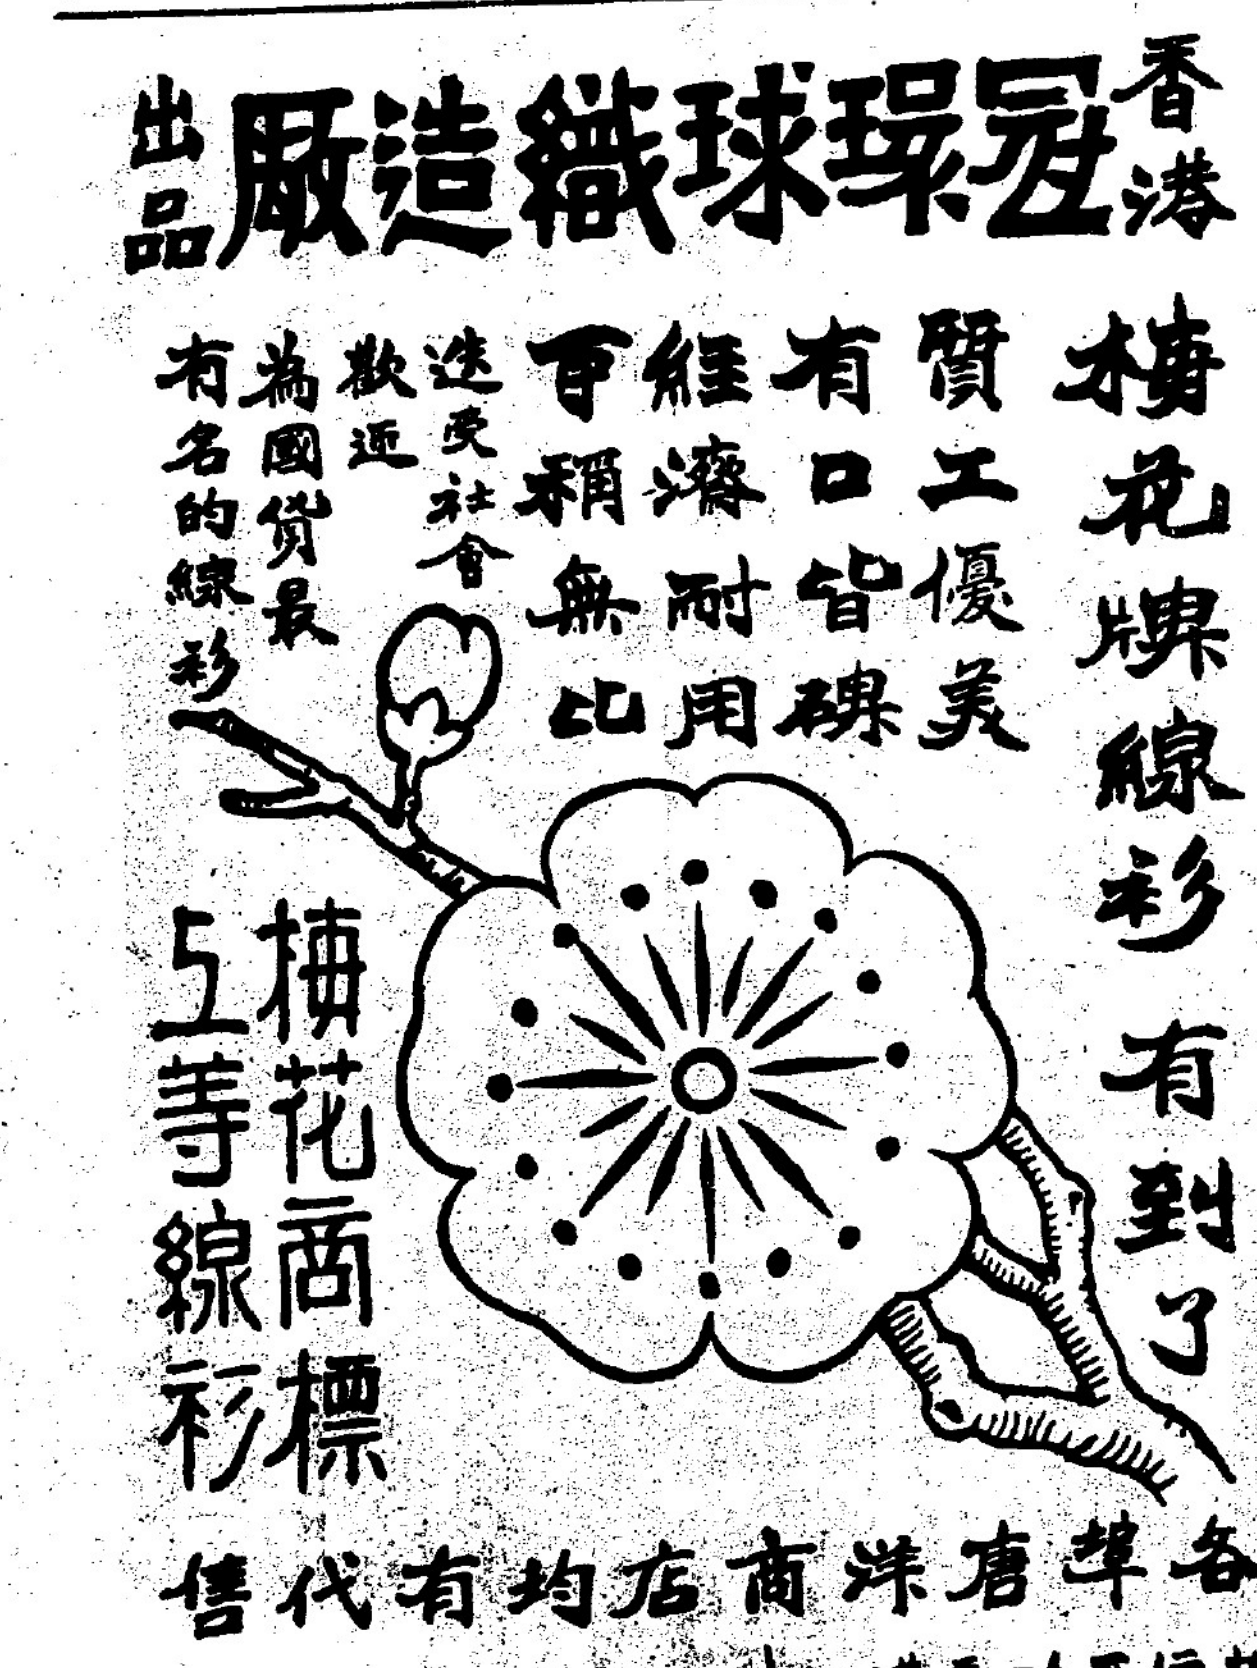 香港
冠環球織造厰
出品
梅花牌線衫 有到了
質工優美
有口皆碑
經濟耐用
百稱無比
迭受社會
歡迎
為國貨最
有名的線衫
梅花商標
上等線衫
各埠唐洋商店均有代售